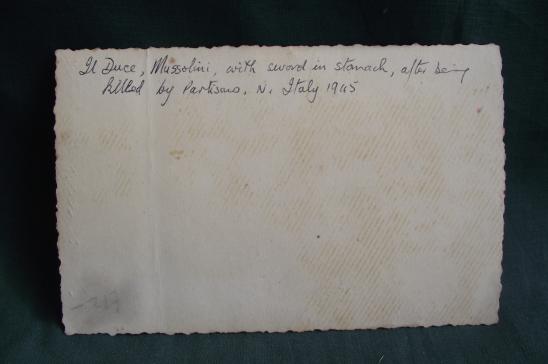 Il Duce, Mussolini, with sword in stomach, after being
killed by Partisans, N. Italy 1945